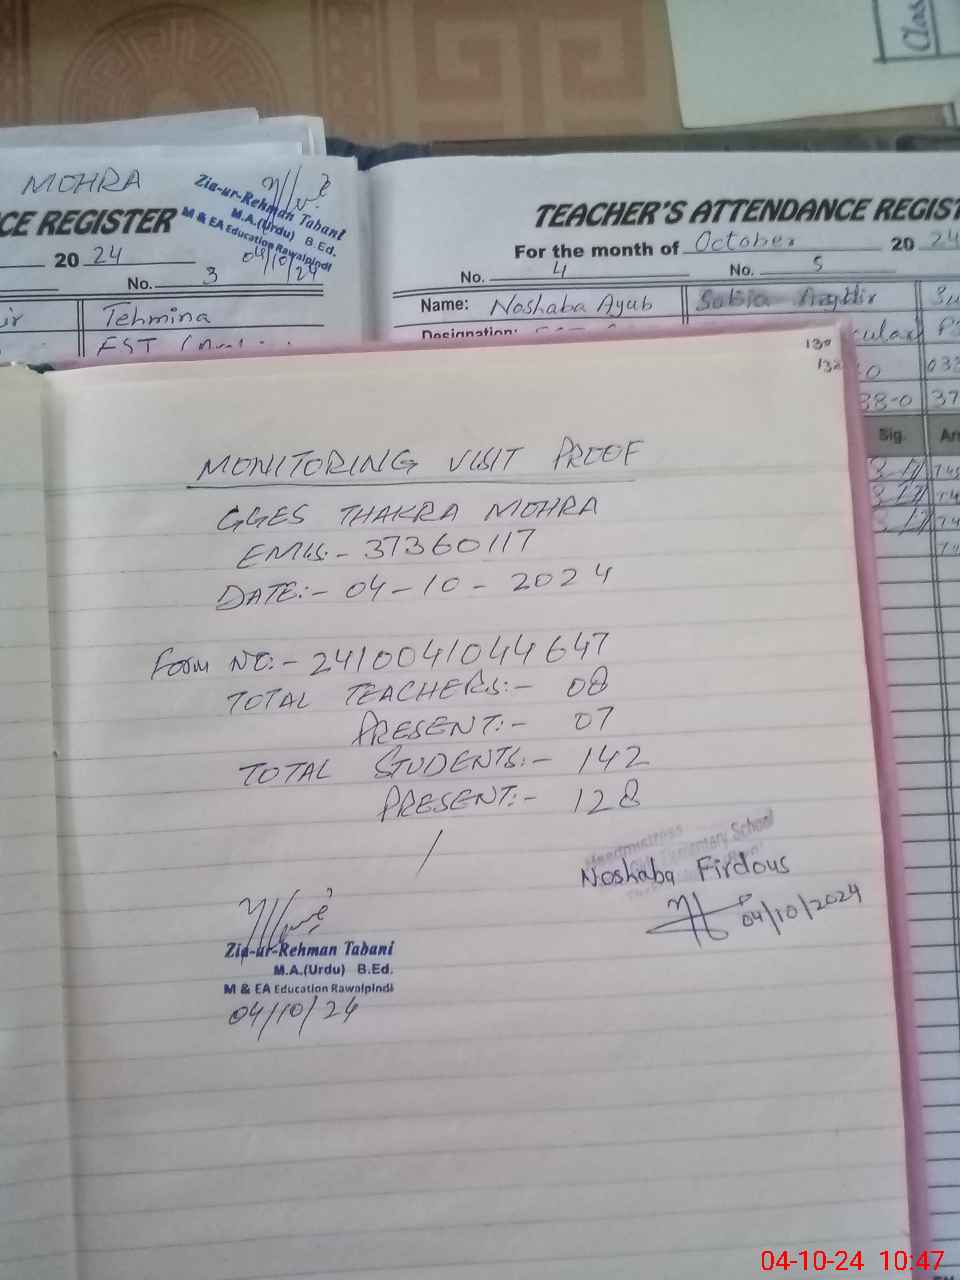 Clas
MOHRA
CE REGISTER
20 24
No. 3
Tehmina
EST
Zia-ur-Rehman Tabani
M.A.(Urdu) B.Ed.
M & EA Education Rawalpindi
04/10/24
TEACHER'S ATTENDANCE REGIST
For the month of October 20 24
No. 4 No. 5
Name: Noshaba Ayub
Designation:
Sig.
130
132
MONITORING VISIT PROOF
GGES THAKRA MOHRA
EMIS:- 37360117
DATE:- 04-10-2024
Form NO:- 2410041044647
TOTAL TEACHERS:- 08
PRESENT:- 07
TOTAL STUDENTS:- 142
PRESENT:- 128
Headmistress
Elementary School
Noshaba Firdous
04/10/2024
Zia-ur-Rehman Tabani
M.A.(Urdu) B.Ed.
M & EA Education Rawalpindi
04/10/24
04-10-24 10:47